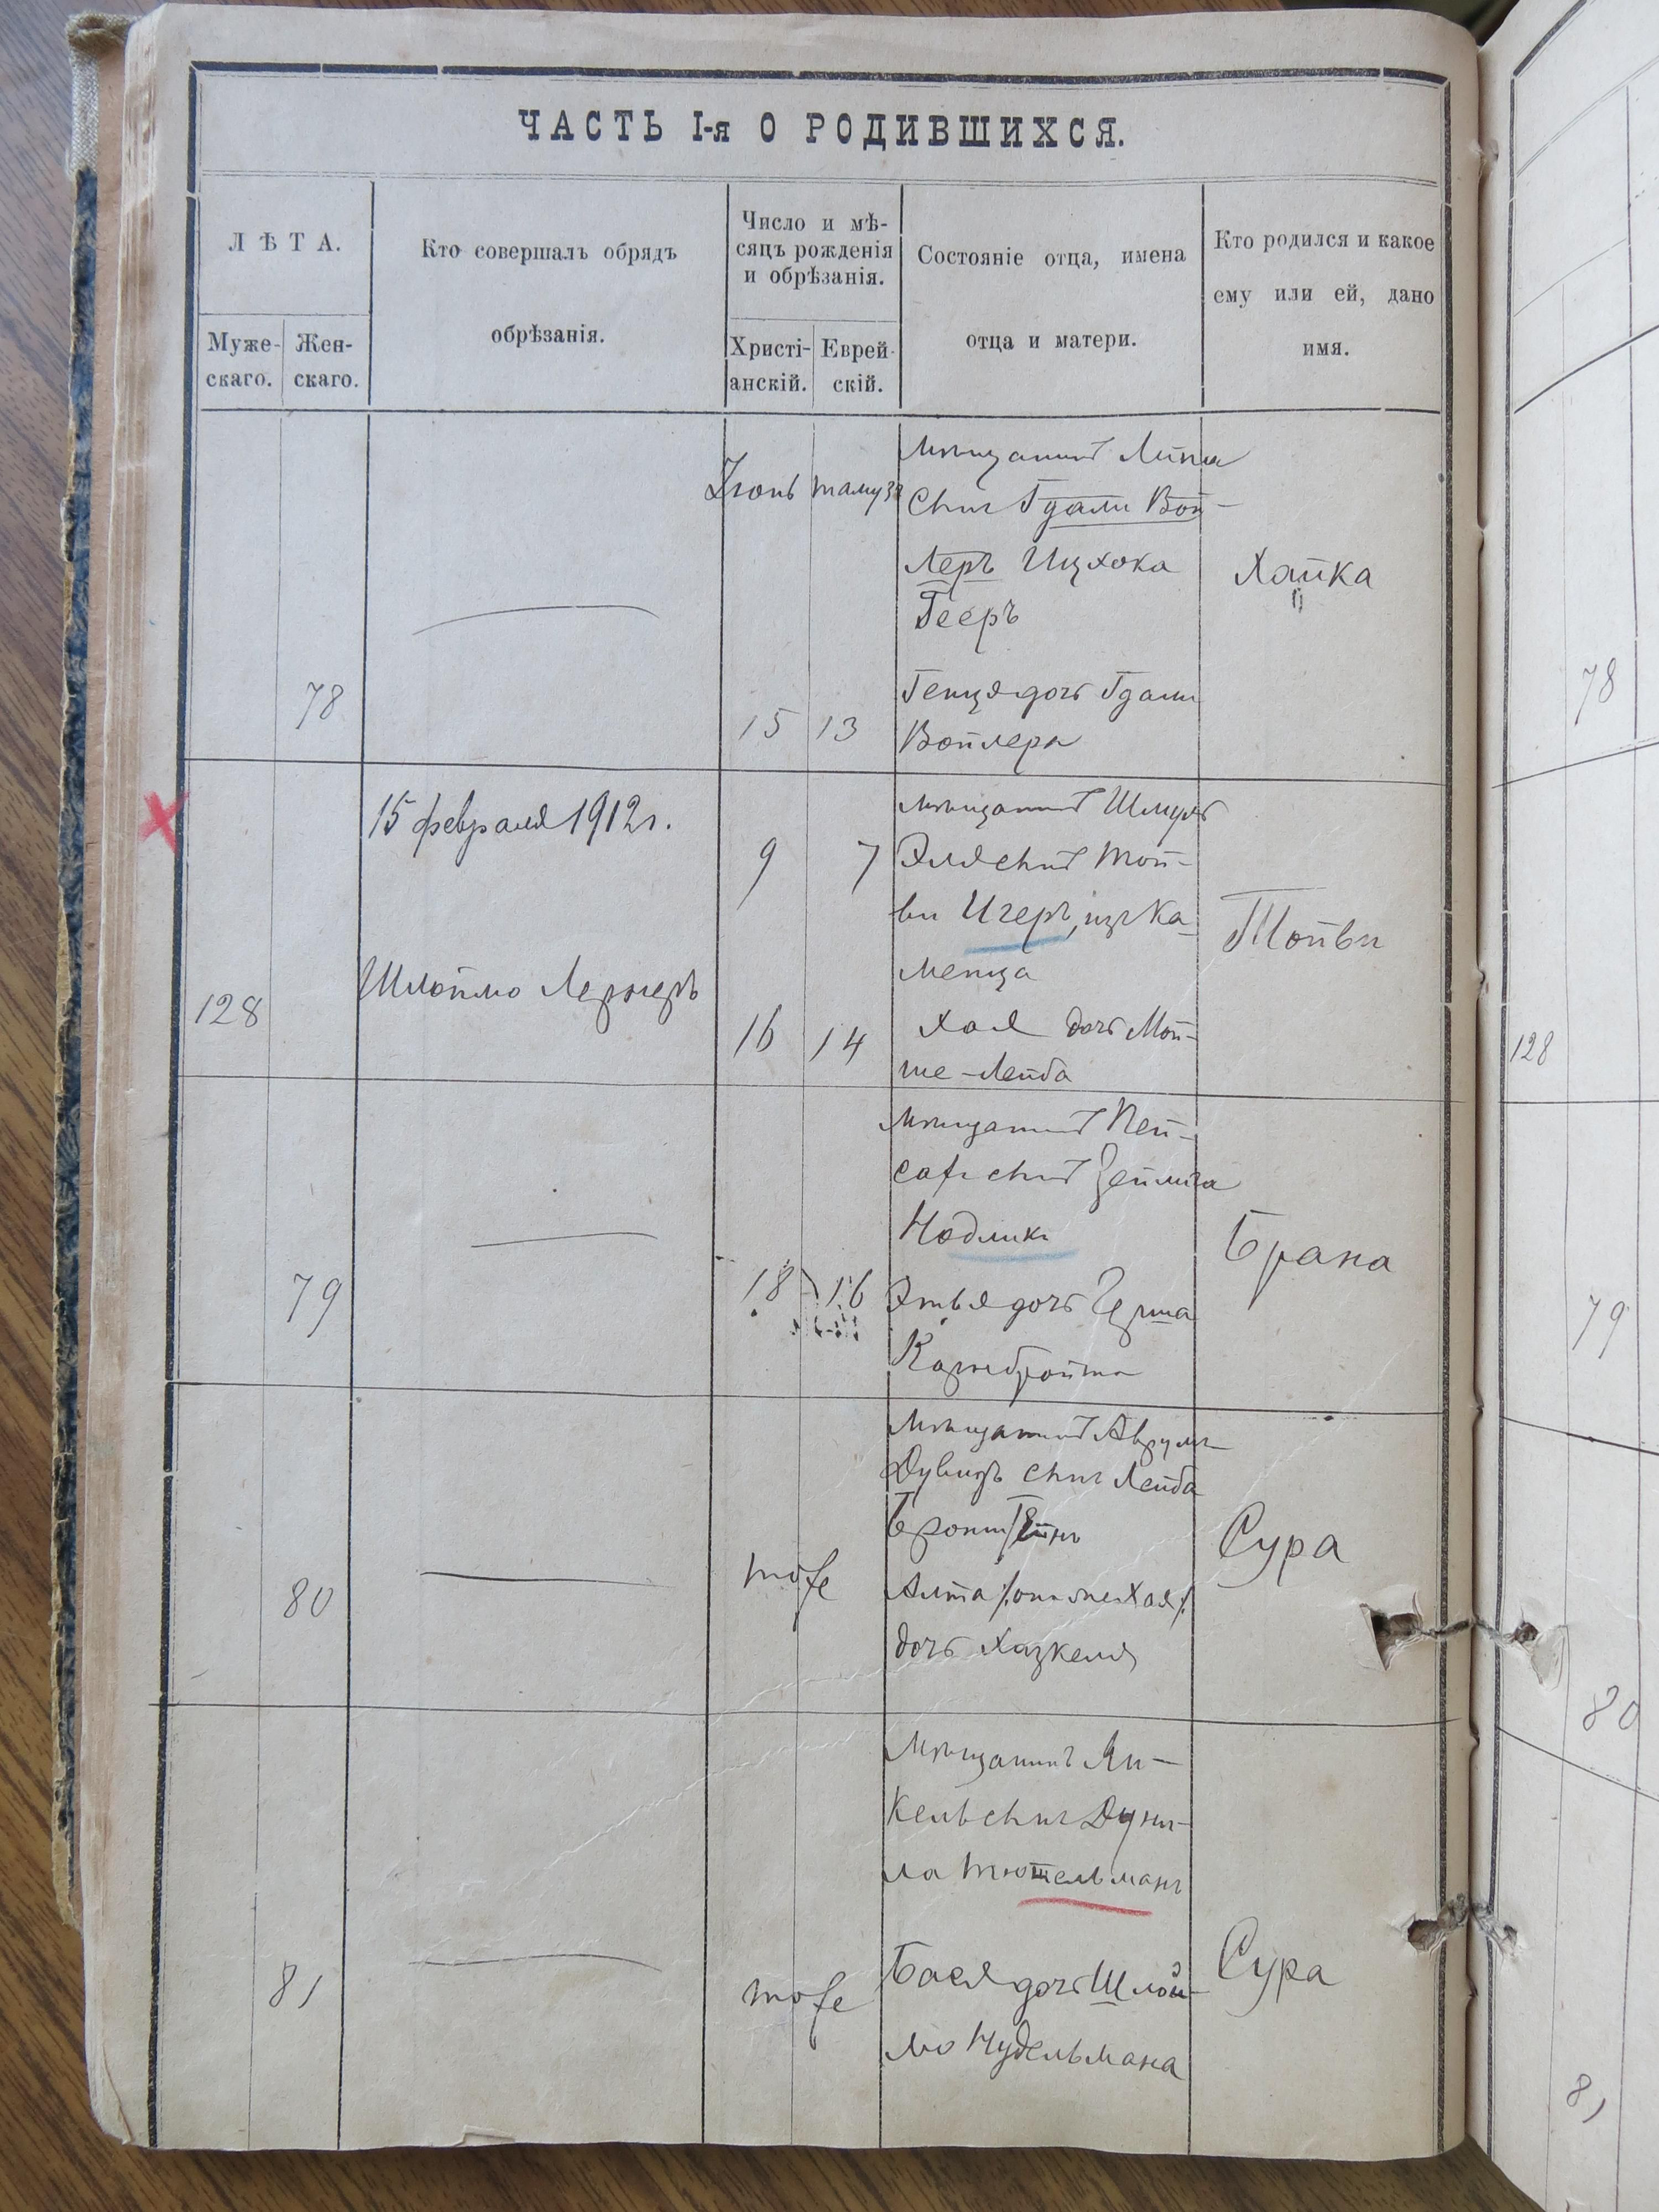 ЧАСТЬ I-я О РОДИВШИХСЯ.
ЛѢТА.
Муже-
скаго.
Жен-
скаго.
Кто совершалъ обрядъ
обрѣзанія.
Число и мѣ-
сяцъ рожденія
и обрѣзанія.
Христі-
анскій.
Еврей-
скій.
Состояніе отца, имена
отца и матери.
Кто родился и какое
ему или ей, дано
имя.
78
Іюнь тамузъ
15 13
мѣщанинъ Липа
сынъ Гдали Вой-
леръ Ицхока
Гееръ
Генця дочь Гдали
Войлера
Хайка
78
128
15 февраля 1912г.
Шлоймо Лернеръ
9 7
16 14
мѣщанинъ Шмуль
Эля сынъ Той-
ви Игеръ, изъ Ка-
менца
Хая дочь Мой-
ше-Лейба
Тойви
128
79
18 16
мѣщанинъ Пей-
сахъ сынъ Зейлига
Нодликъ
Этья дочь Герша
Брана
79
80
тоже
мѣщанинъ Аврумъ-
Дувидъ сынъ Лейба
Бронштейнъ
Алта /:онъ же Хая:/
дочь Хазкеля
Сура
80
81
тоже
мѣщанинъ Ян-
кель сынъ Дуни-
ла Тютельманъ
Бася дочь Шлой-
мо Нудельмана
Сура
81